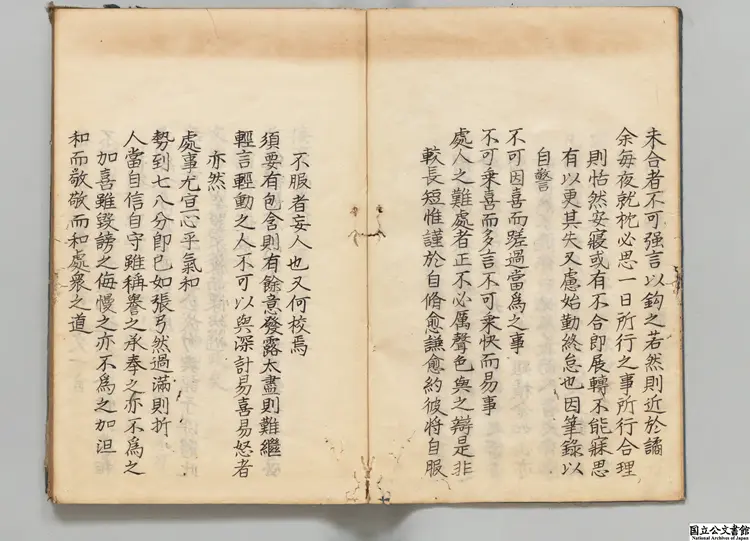 未合者不可强言以鈎之若然則近於譎
余每夜就枕必思一日所行之事所行合理
則怗然安寢或有不合即展轉不能寐思
有以更其失又慮始勤終怠也因筆錄以
自警
不可因喜而蹉過當爲之事
不可乗喜而多言不可乗快而易事
處人之難處者正不必厲聲色與之辯是非
較長短惟謹於自脩愈謙愈約彼將自服
不服者妄人也又何校焉
須要有包含則有餘意發露太盡則難繼
輕言輕動之人不可以與深計易喜易怒者
亦然
處事尤宜心平氣和
勢到七八分即已如張弓然過滿則折
人當自信自守雖稱譽之承奉之亦不爲之
加喜雖毀謗之侮慢之亦不爲之加沮
和而敬敬而和處衆之道
国立公文書館
National Archives of Japan